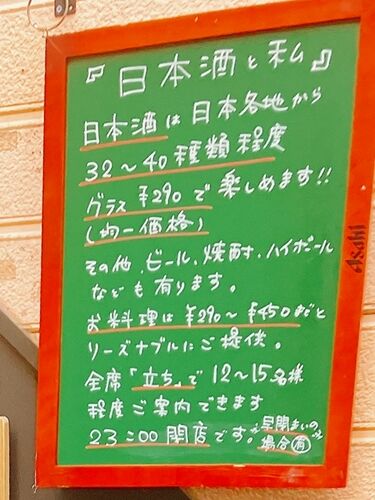 『日本酒と私』
日本酒は日本各地から
32〜40種類程度
グラス¥290で楽しめます!!
(均一価格)
その他、ビール、焼酎、ハイボール
なども有ります。
お料理は¥290〜¥450までと
リーズナブルにご提供。
全席「立ち」で12〜15名様
程度ご案内できます
23:00閉店です。
場合有
Asahi